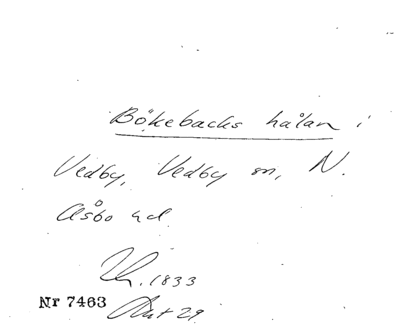 Bökebacks hålan i
Vedby, Vedby sn, N.
Åsbo hd
1833
Nr 7463
29